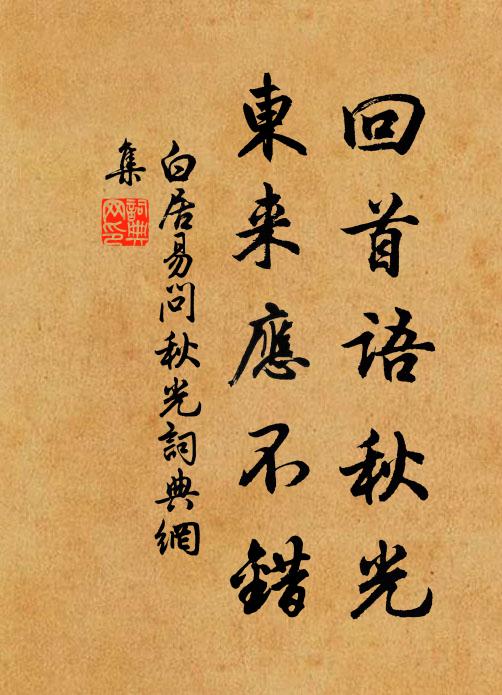 回首語秋光
東来應不錯
白居易問秋光詞典網
集
詞典
网印